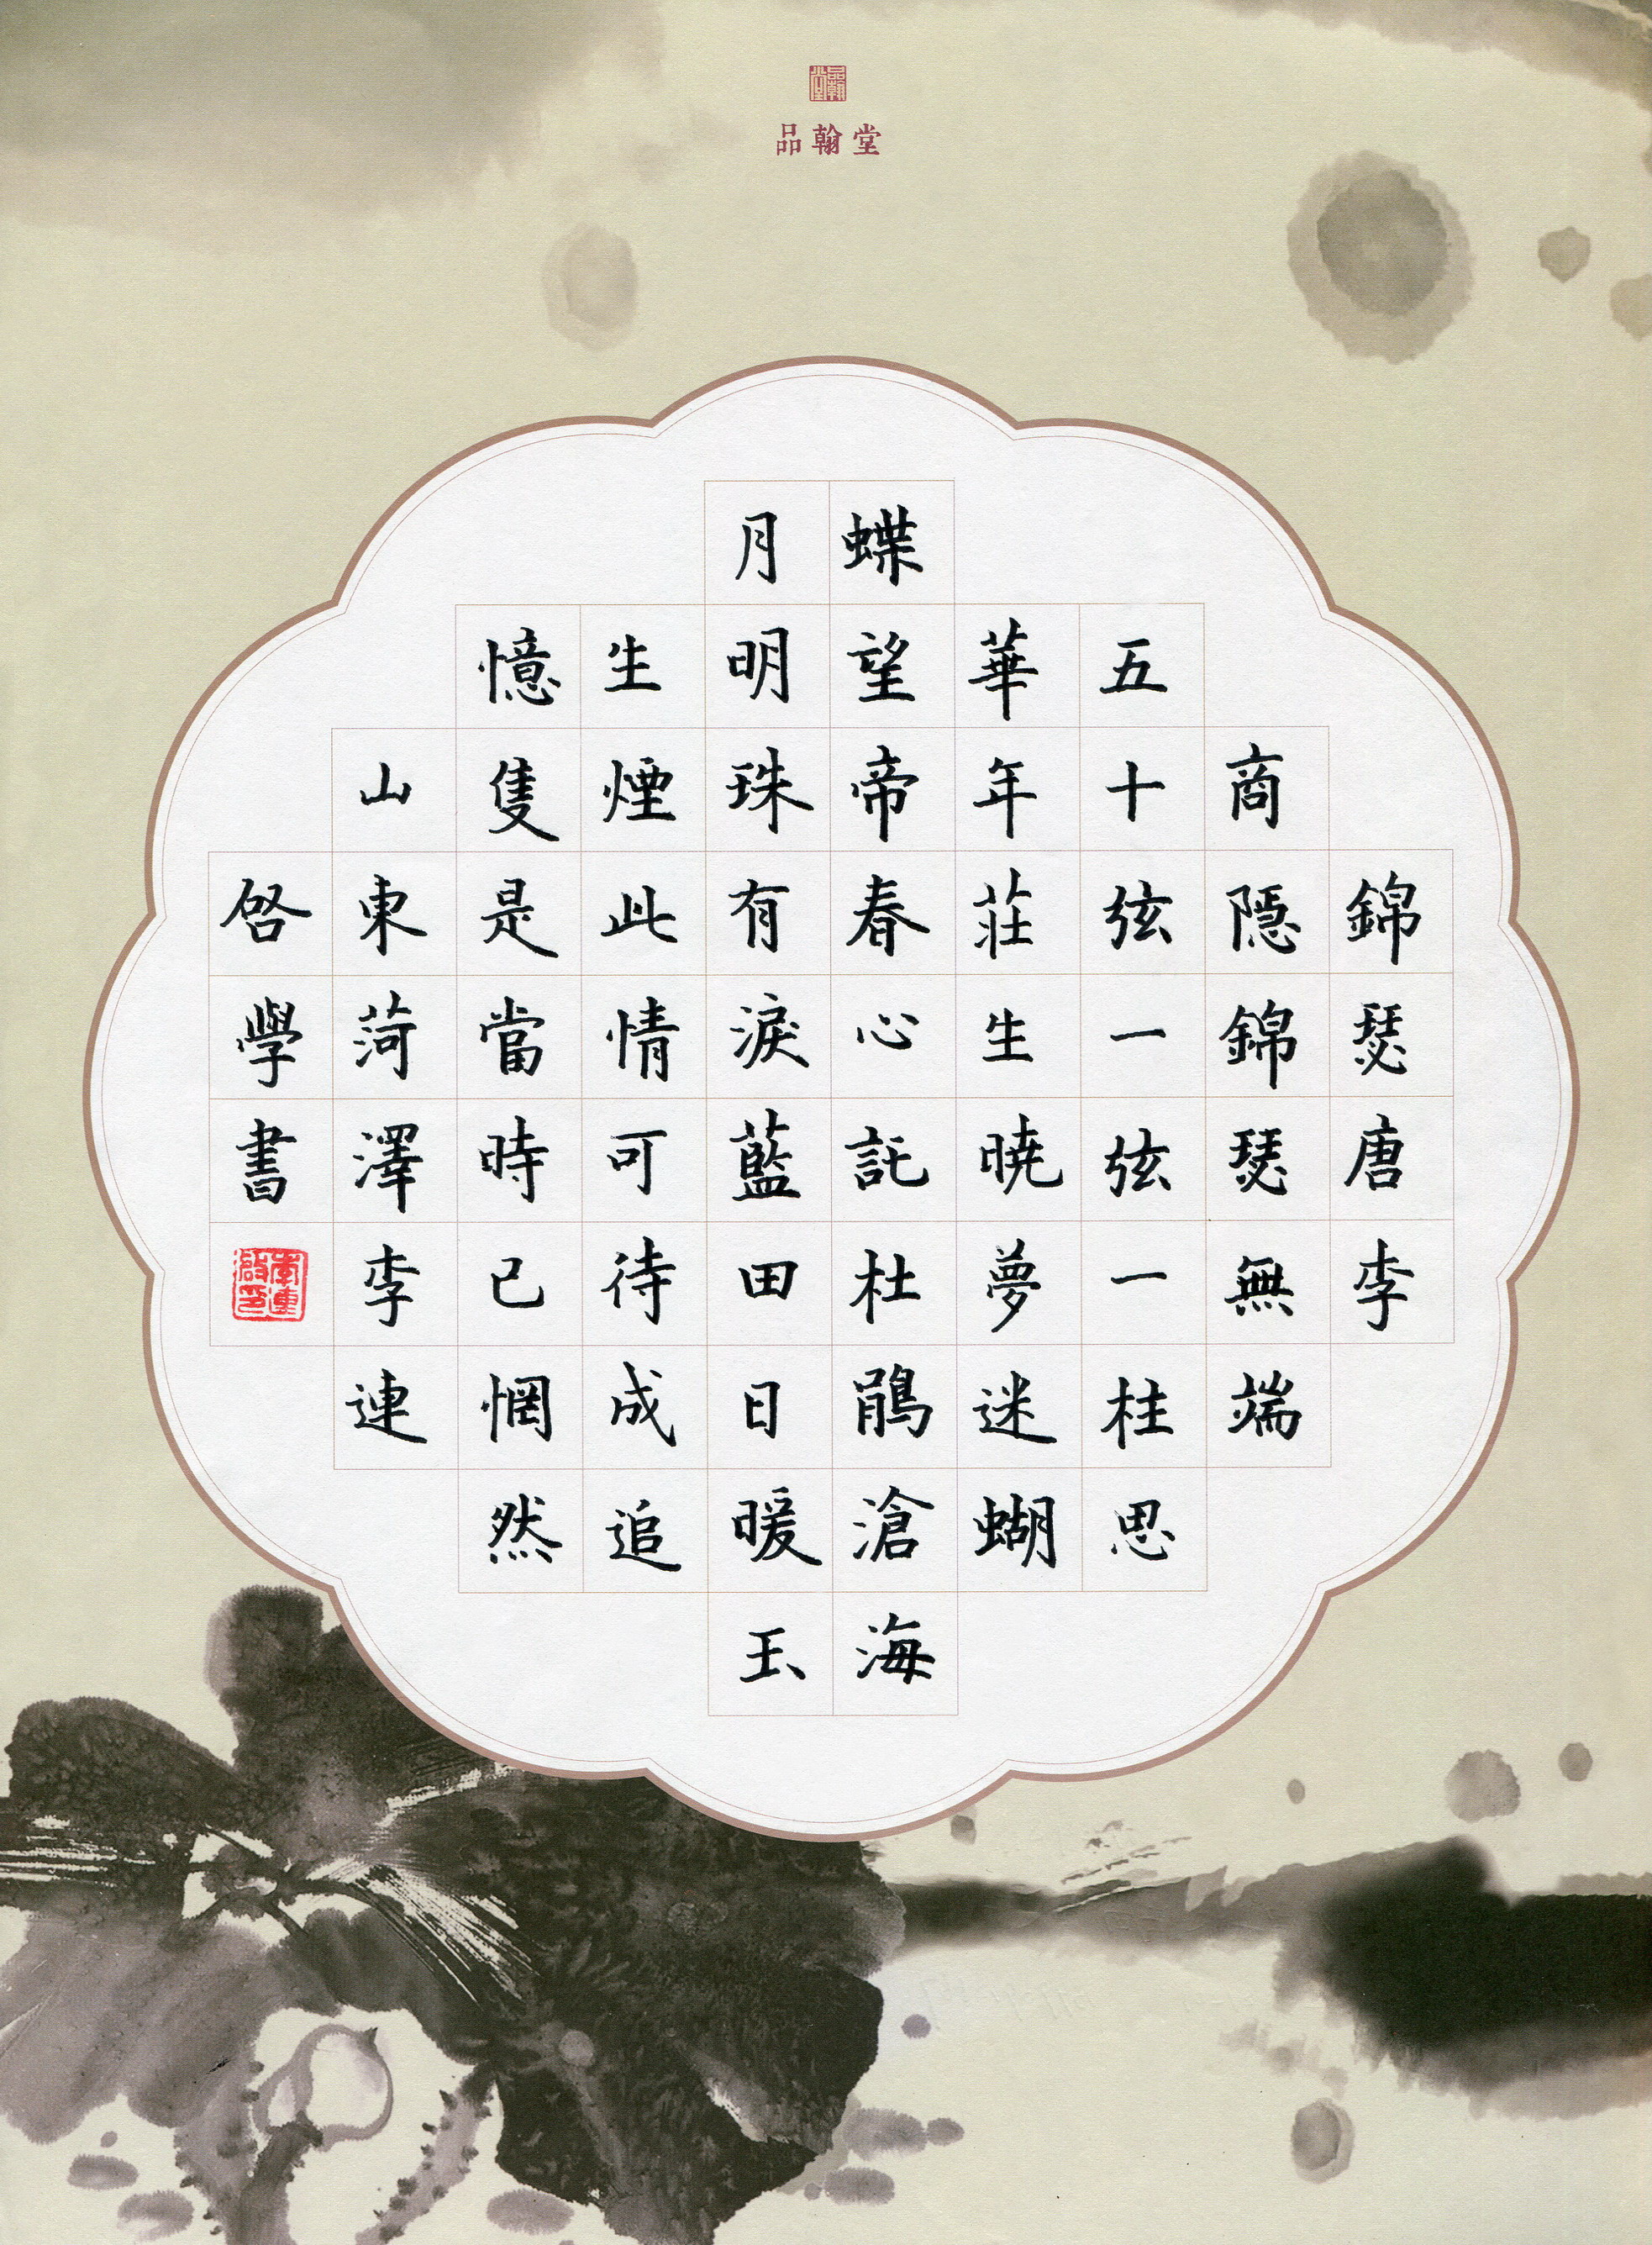 品翰堂
錦瑟唐李
商隱錦瑟無端
五十弦一弦一桂思
華年莊生曉夢迷蝴
蝶望帝春心託杜鵑滄海
月明珠有淚藍田日暖玉
生煙此情可待成追
憶隻是當時已惘然
山東菏澤李連
啓學書